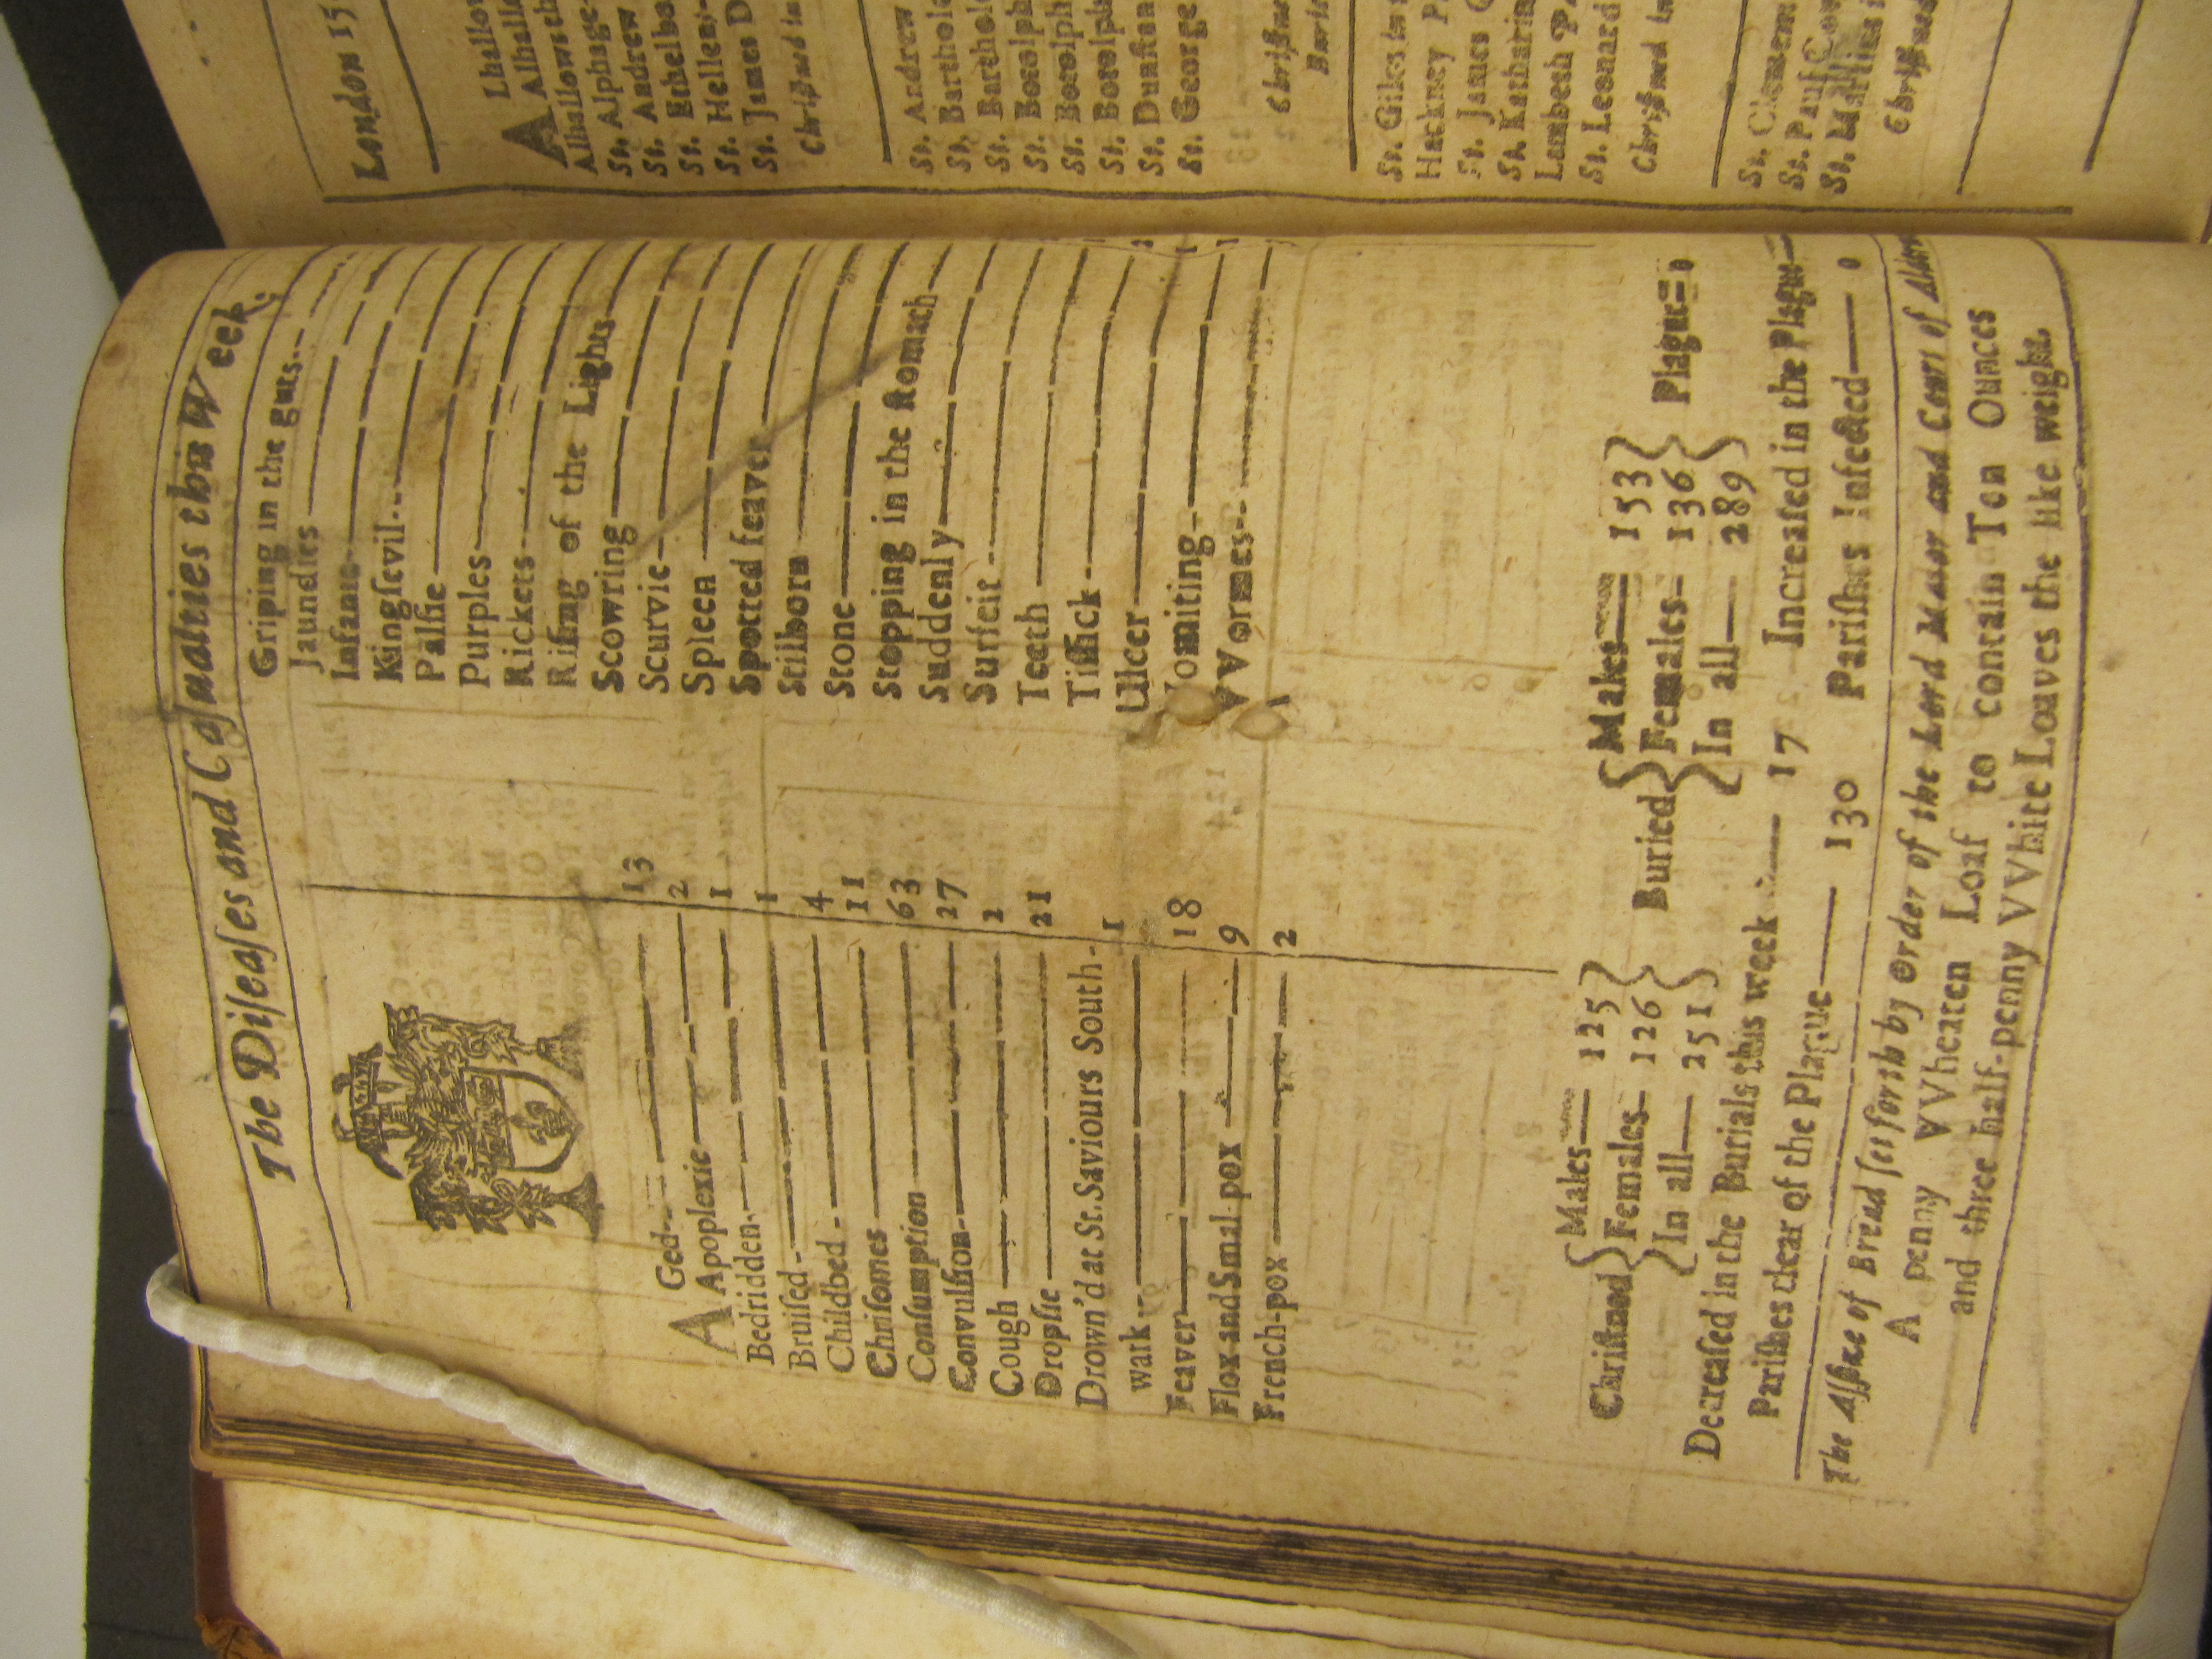 The Diſeaſes and Caſualties this Week.
AGed 13
Apoplexie 2
Bedridden 1
Bruiſed 1
Childbed 4
Chriſomes 11
Conſumption 63
Convulſion 27
Cough 2
Dropſie 21
Drown'd at St. Saviours South-
wark 1
Feaver 18
Flox and Smal-pox 9
French-pox 2
Griping in the guts
Jaundies
Infants
Kingſevil
Palſie
Purples
Rickets
Riſing of the Lights
Scowring
Scurvie
Spleen
Spotted feaver
Stilborn
Stone
Stopping in the ſtomach
Suddenly
Surfeit
Teeth
Tiſſick
Ulcer
Vomiting
VVormes
Chriſtned { Males 125
Females 126
In all 251 }
Buried { Males 153
Females 136
In all 289 }
Plague 0
Decreaſed in the Burials this week 17
Increaſed in the Plague
Pariſhes clear of the Plague 130
Pariſhes Infected 0
The Aſſize of Bread ſet forth by Order of the Lord Maior and Court of
A penny VVheaten Loaf to contain Ten Ounces
and three half-penny VVhite Loaves the like weight.
London 15
Alhallowsth
St. Alphage
St. Andrew
St. Ethelbo
St. Hellen
St. James D
Chriſtned in
St. Andrew
St. Barthol
St. Barthol
St. Botolph
St. Botolph
St. Botolph
St. Dunſtan
St. George
Chriſtne
St. Giles in
Hackney
St. James
St. Katharin
Lambeth
St. Leonard
Chriſtned in
St. Clemen
St. Paul Cov
St. Martins
Chriſtned